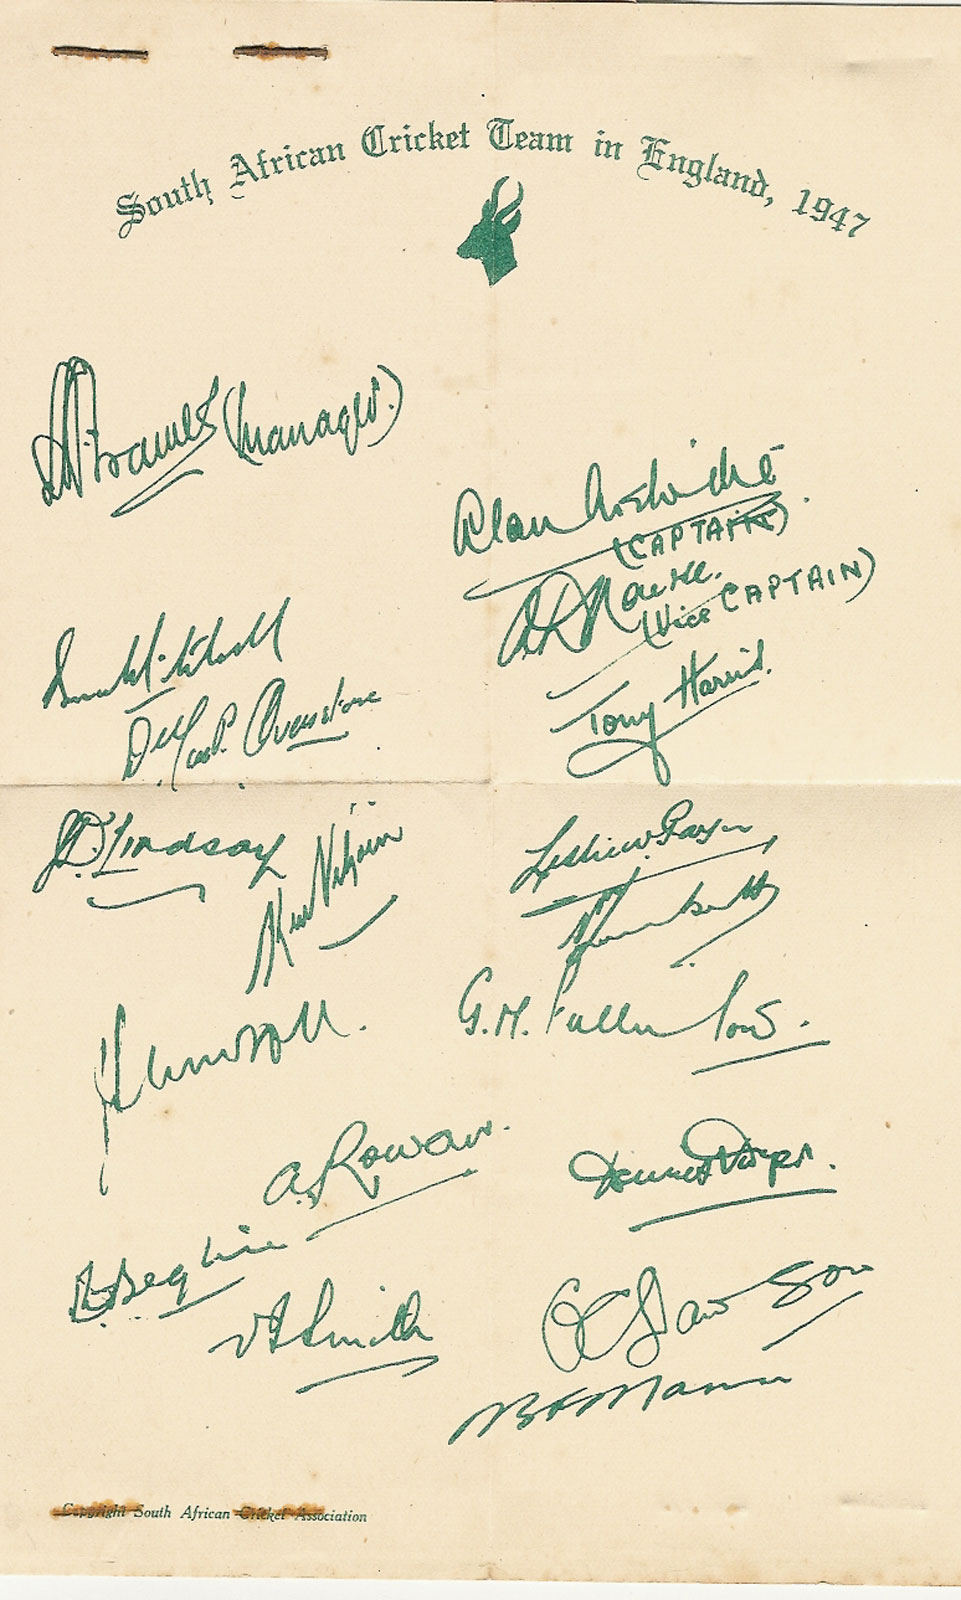 South African Cricket Team in England, 1947
Frames (Manager.)
Alan
(CAPTAIN)
A.D Nourse.
(Vice CAPTAIN)
Mitchell
Tony Harris.
Ovenstone
J.D. Lindsay
Leslie W. Payn
Ken Viljoen
Tuckett
G.M. Fullerton.
Plimsoll.
A. Rowan.
Dennis Dyer.
Begbie
V I Smith
O C Dawson
N B F Mann
Copyright South African Cricket Association